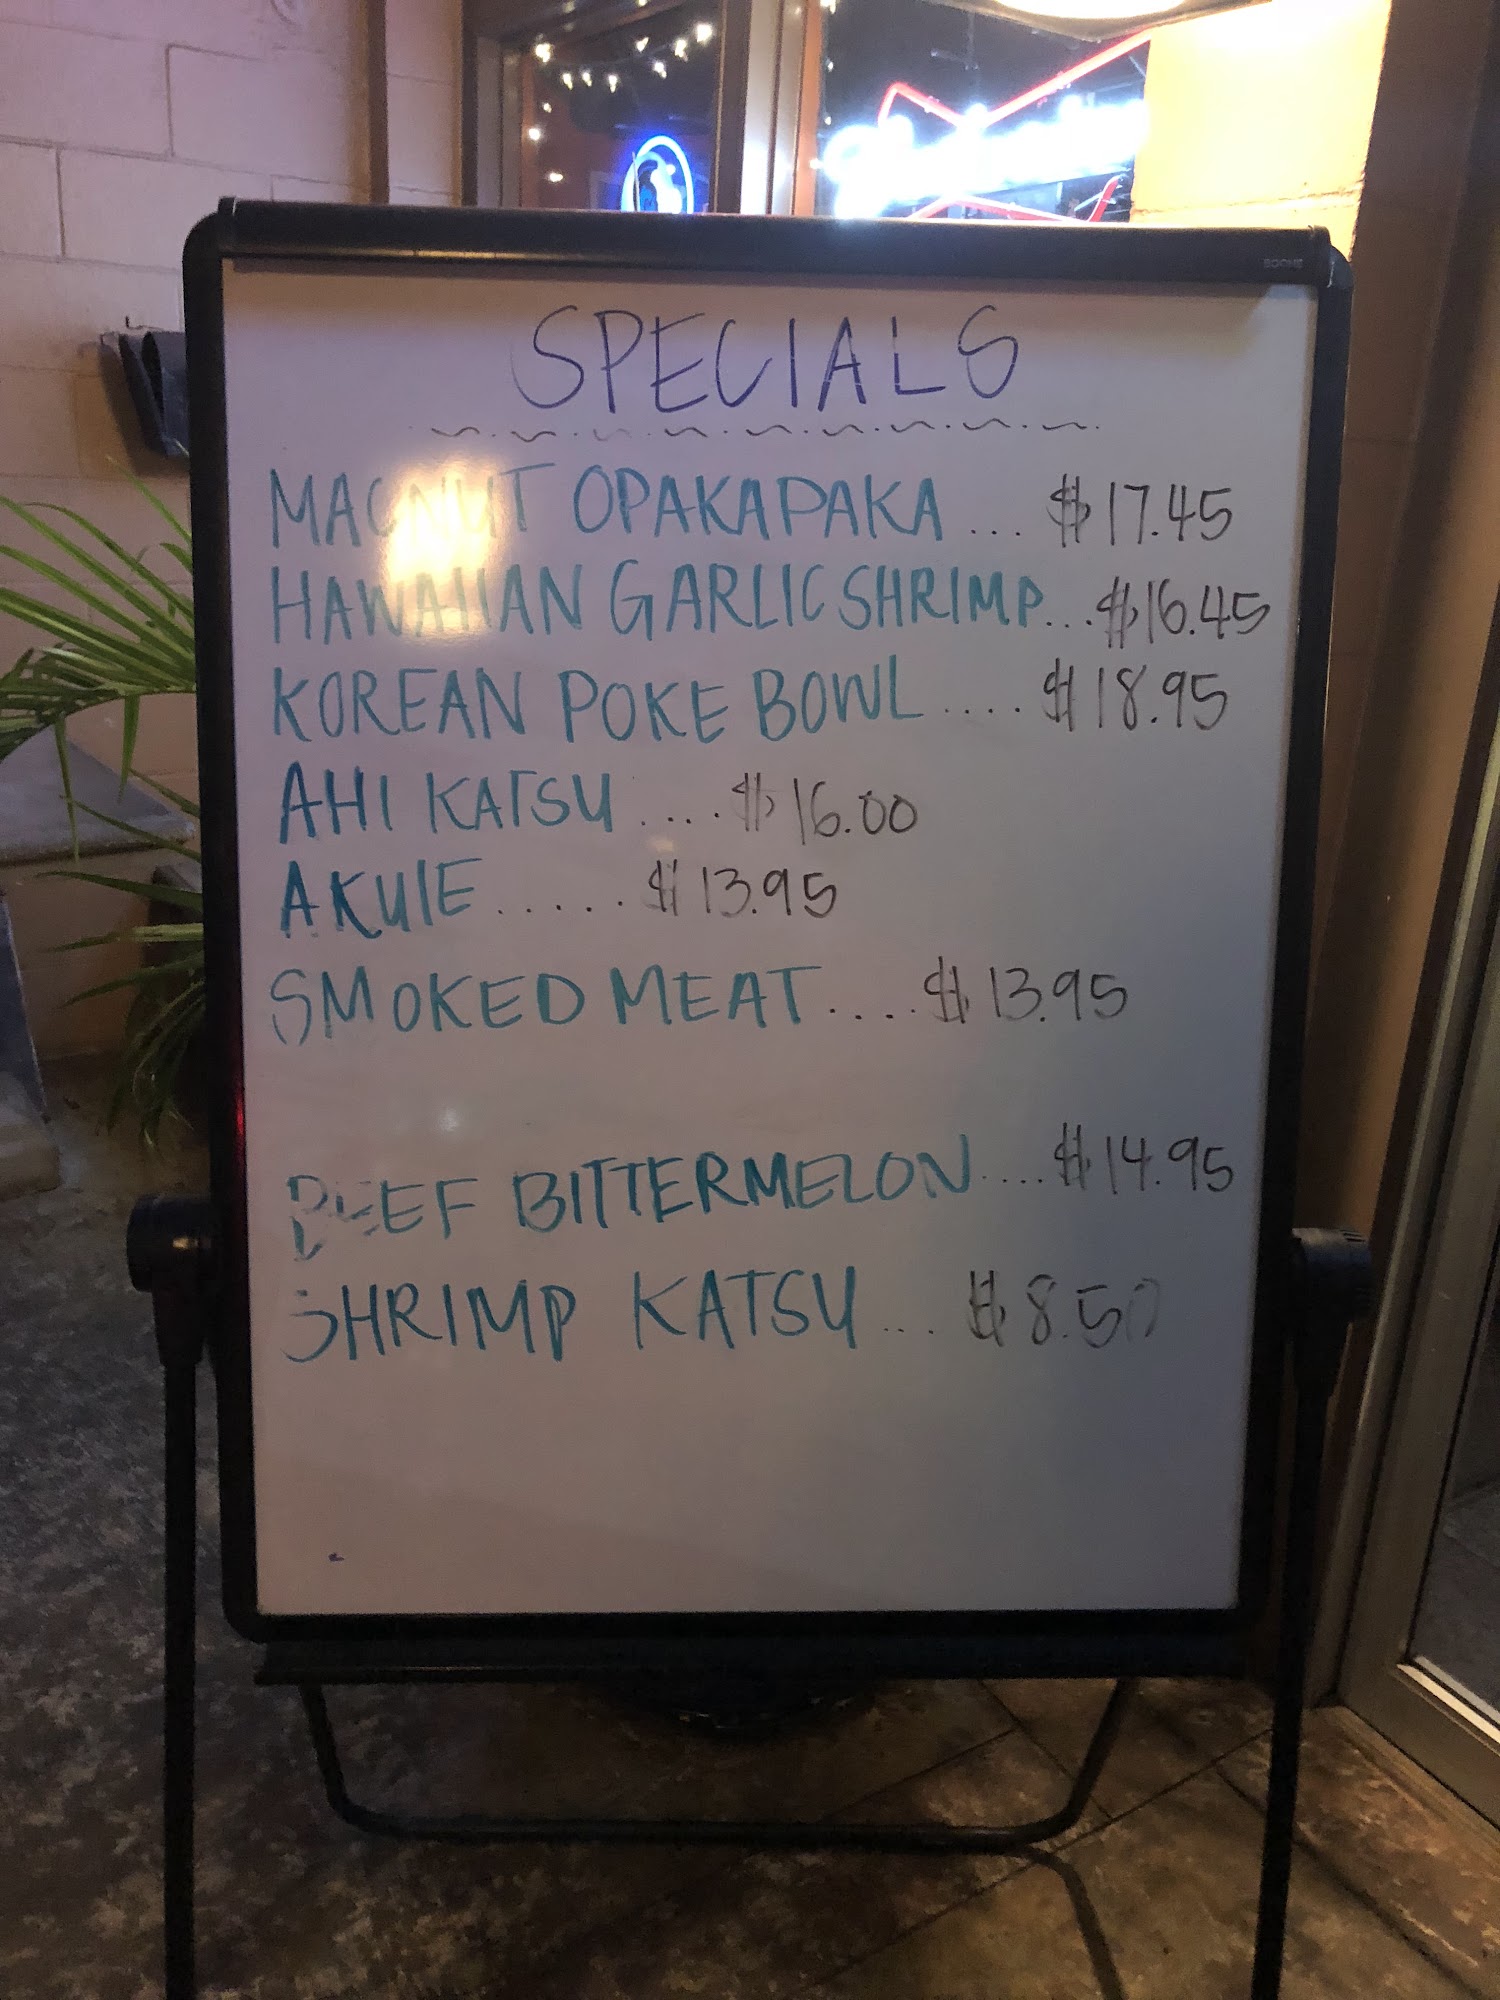 SPECIALS
MACNUT OPAKAPAKA ... $17.45
HAWAIIAN GARLIC SHRIMP...$16.45
KOREAN POKE BOWL .... $18.95
AHI KATSU .... $16.00
AKULE ..... $13.95
SMOKED MEAT .... $13.95
BEEF BITTERMELON .... $14.95
SHRIMP KATSU ... $8.50